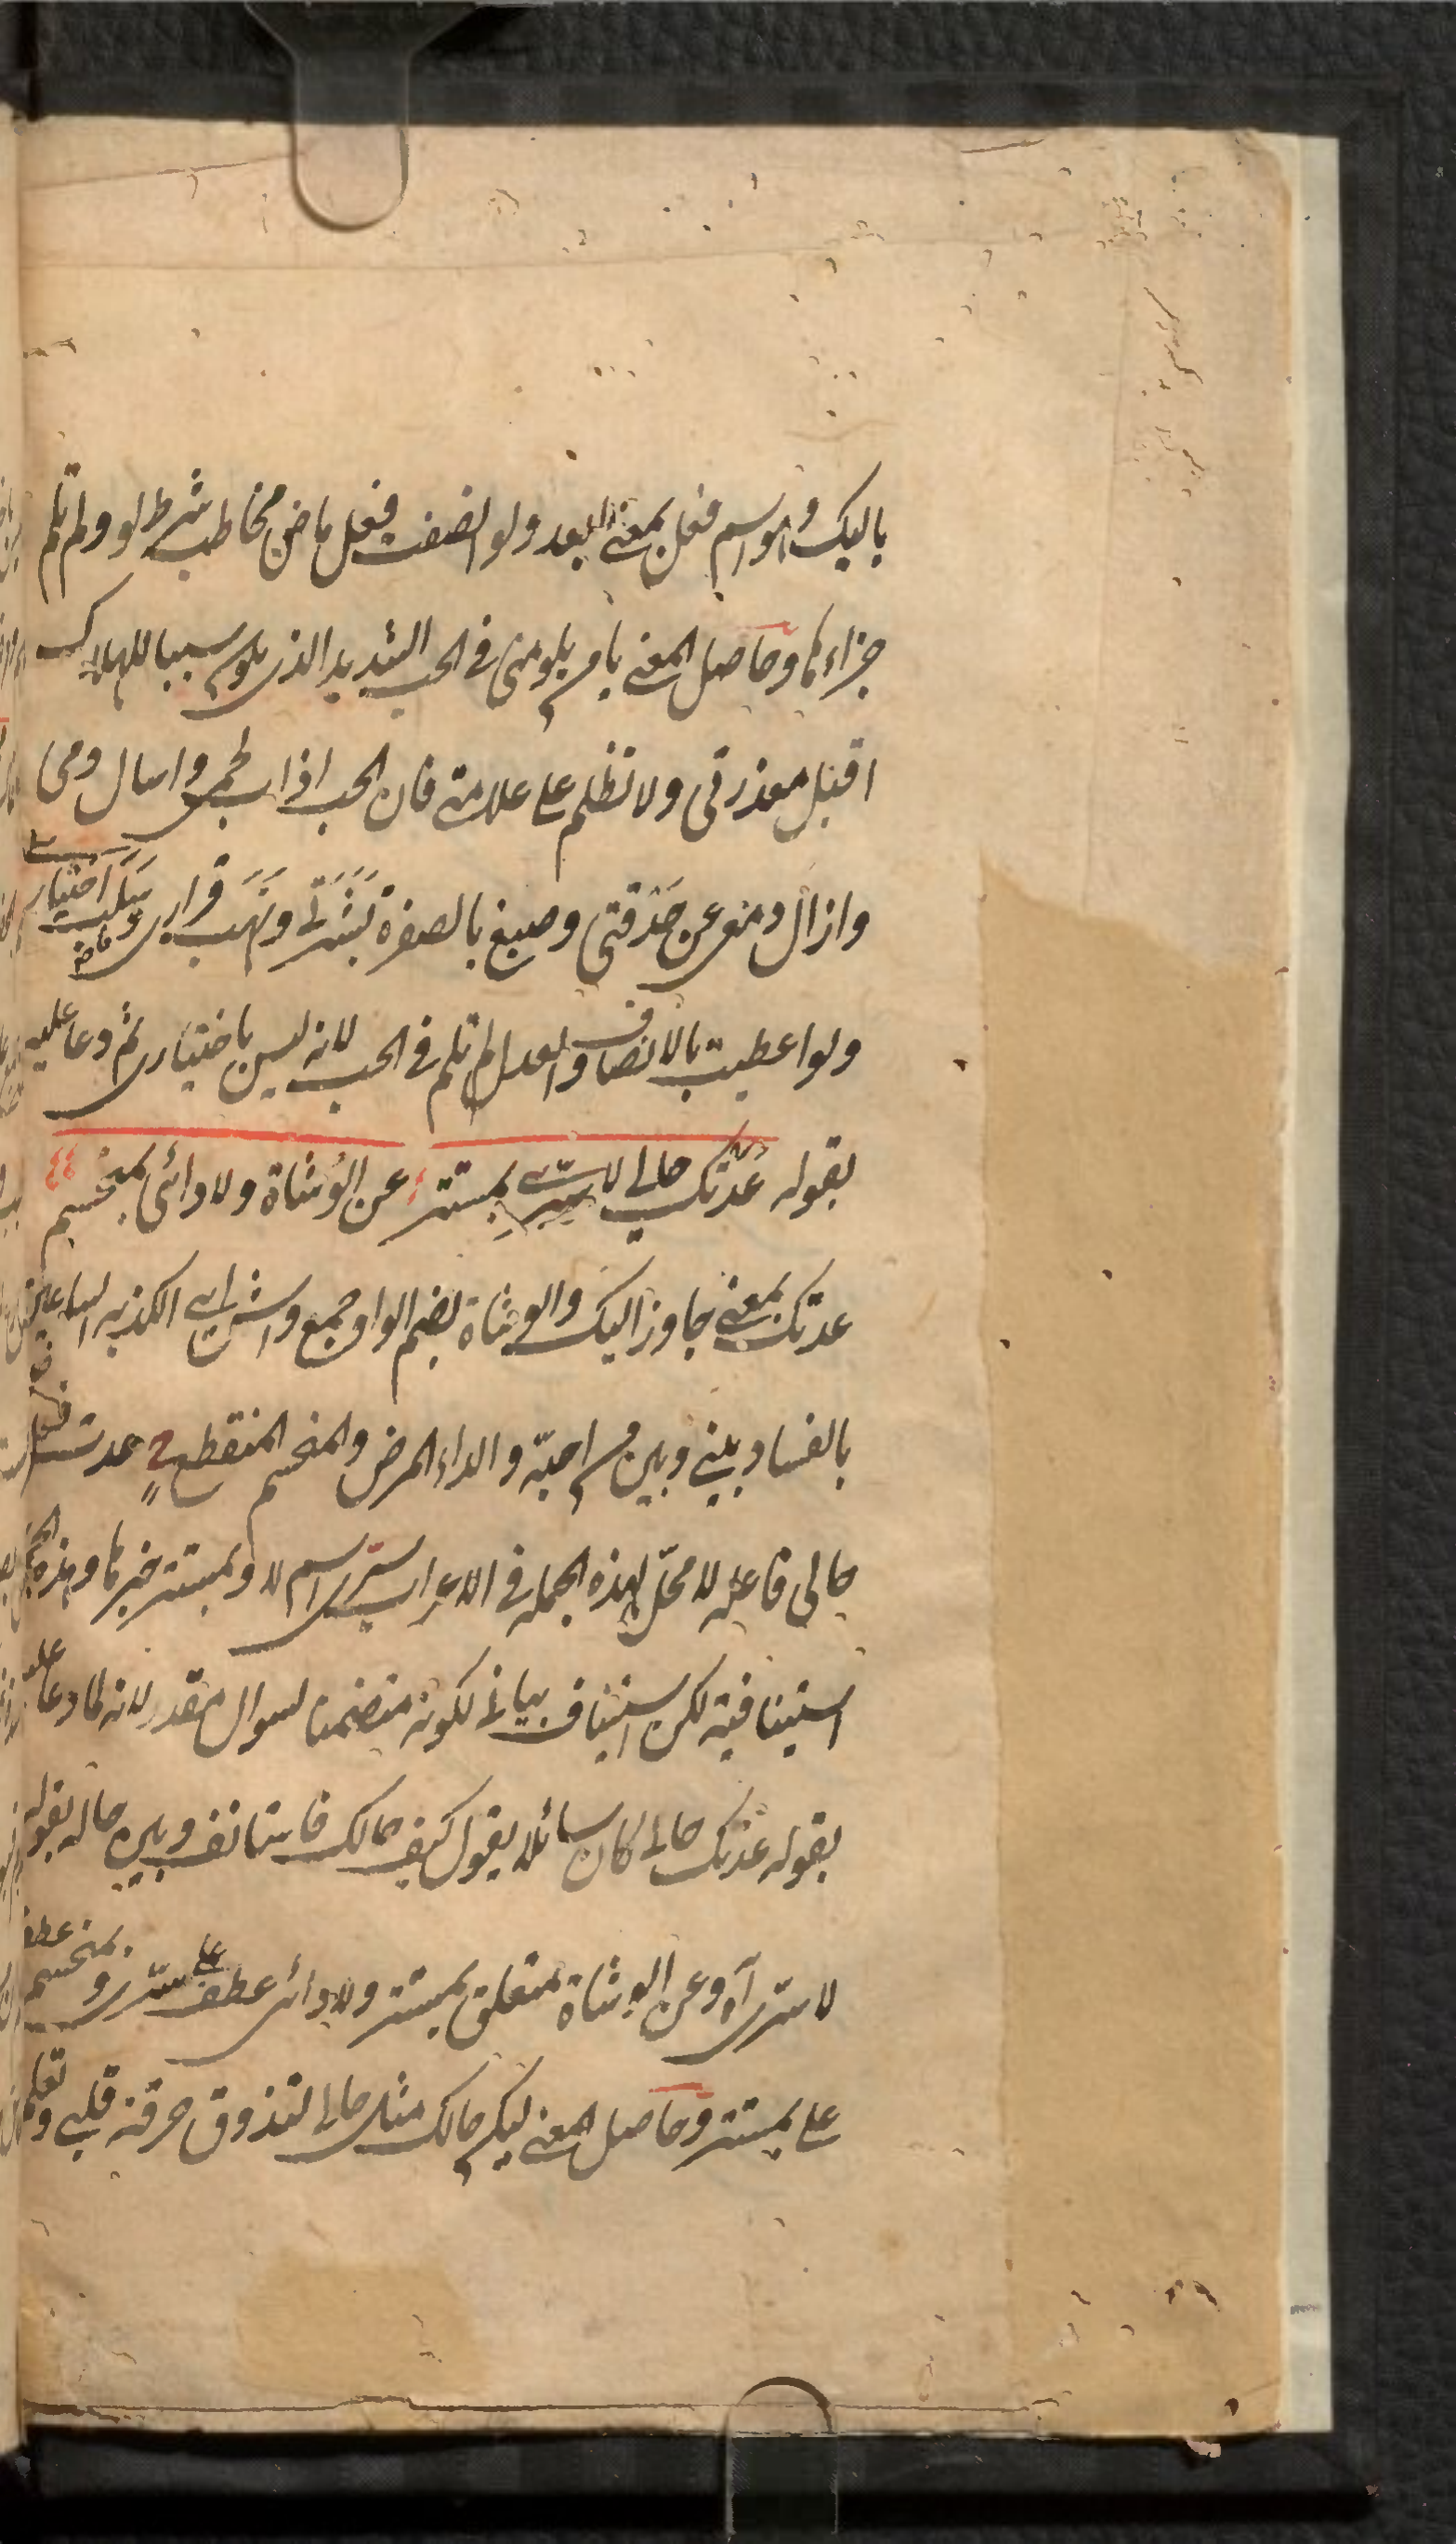 باليك وهو اسم فعل بمعنى ابعد ولو انصفت فعل ماض مخاطب شرط لو ولم تلم
جزاءها وحاصل المعنى يا من يلومني في الحب الشديد الذي يكون سببا للهلاك
اقبل معذرتي ولا تظلم على علامتي فان الحب اذاب لحمي واسال دمي
وازال دمعي عن حدقتي وصبغ بالصفرة بشرتي ونهب قراري وسلب اختياري
ولو اعطيت بالانصاف والعدل لم تلم في الحب لانه ليس باختياري ثم دعا عليه
بقوله عدتك حالي لا سري بمستتر عن الوشاة ولا دائي بمنحسم
عدتك بمعنى جاوز اليك والوشاة بضم الواو جمع واش اي الكذبة الساعين
بالفساد بيني وبين من احبه والداء المرض والمنحسم المنقطع عدت فعل
حالي فاعله لا محل لهذه الجملة في الاعراب سري اسم لا وبمستتر خبرها وهذه الجملة
استينافية لكن استيناف بياني لكونه متضمنا لسوال مقدر لانه لما دعا عليه
بقوله عدتك حالي كان سائلا يقول كيف حالك فاستانف وبين حاله بقوله
لا سري آه وعن الوشاة متعلق بمستتر ولا دائي عطف على سري وبمنحسم عطف
على بمستتر وحاصل المعنى ليكن حالك مثل حالي لتذوق حرقة قلبي وتعلم